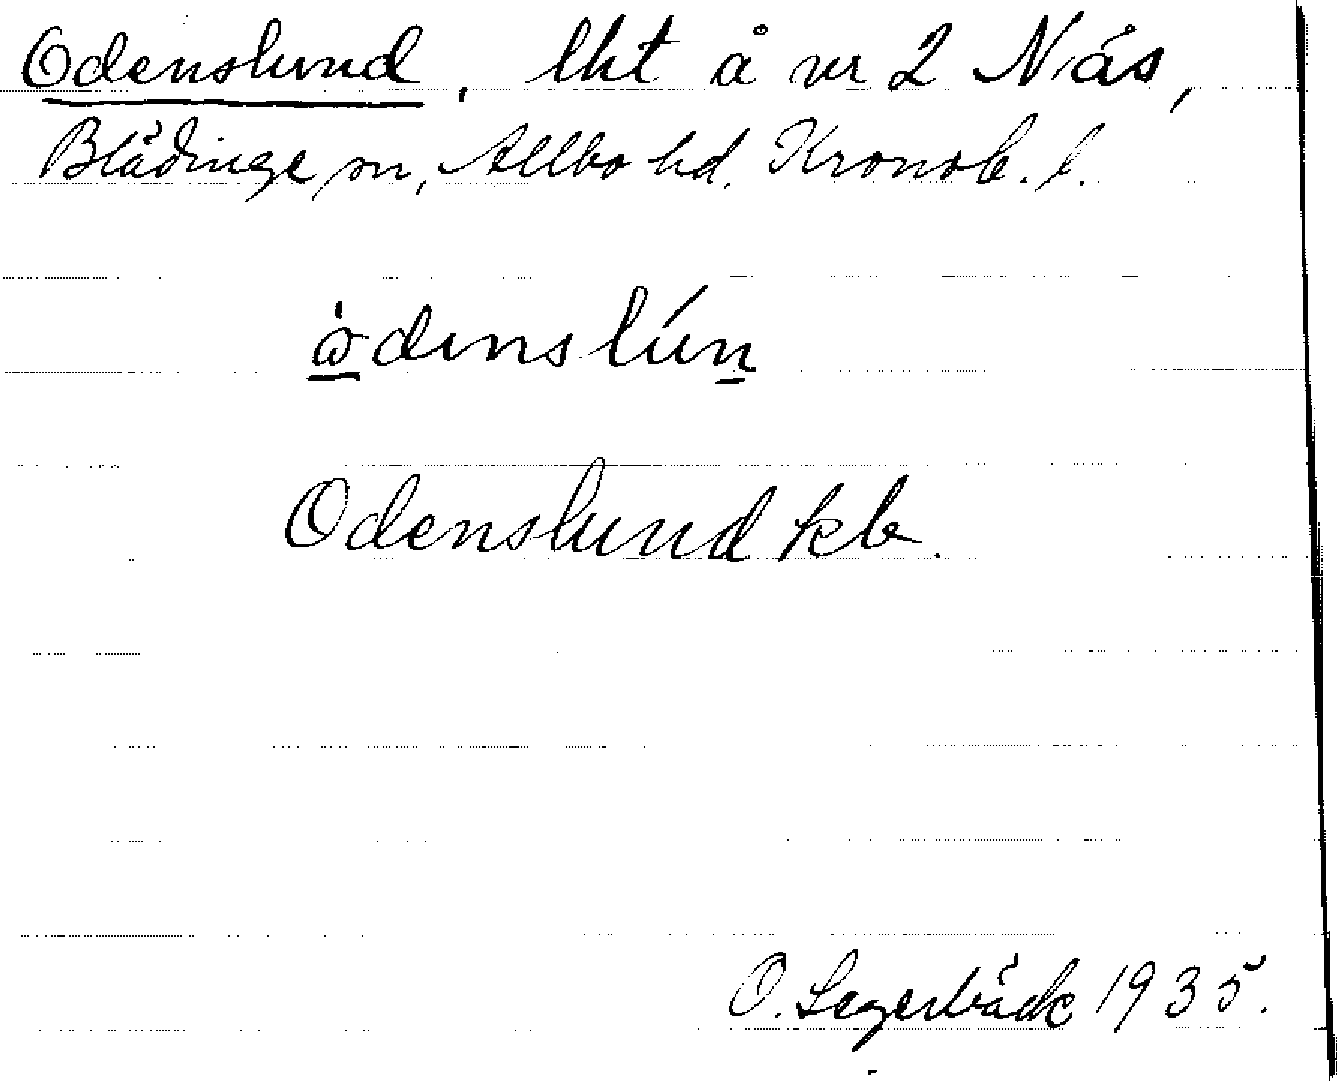 Odenslund, lht å nr 2 Näs,
Blädinge sn, Allbo hd. Kronob. l.
ò̱dɩnslún̠
Odenslund kb.
O. Segerbäck 1935.